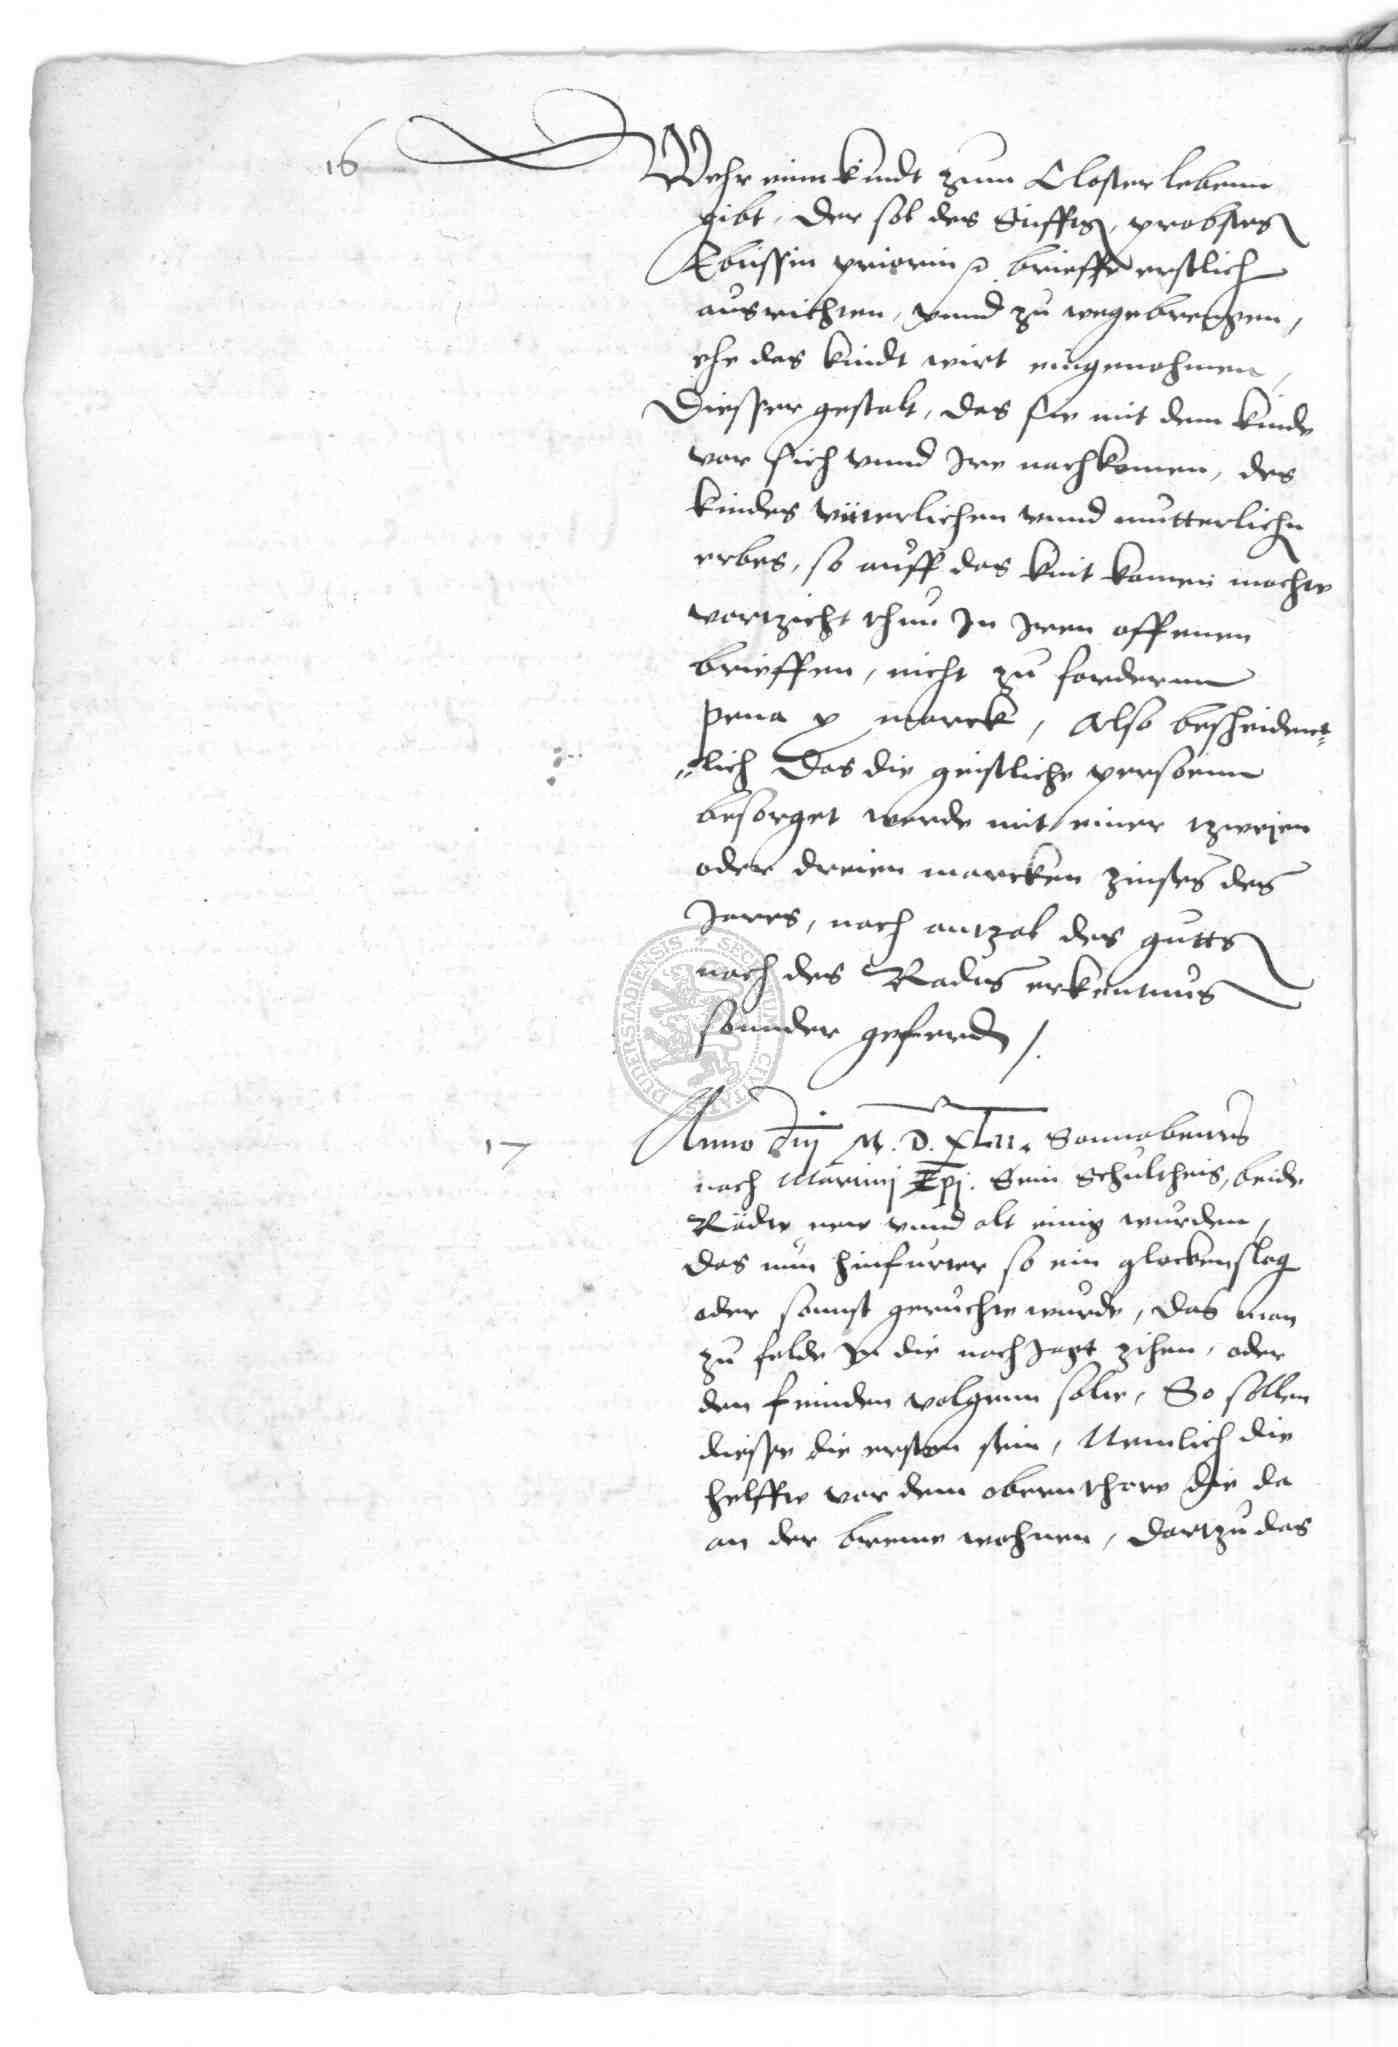 16
Wehr einn kindt zum Closter lebenn
gibt, der sol des Stiffts, probstes
Ebtissin priorin &c. brieffe erstlich
ausrichten, vnnd zu wegebrengen,
ehe das kindt wirt eingenohmen,
Diesser gestalt, das sie mit dem kinde
vor sich vnnd Ire nachkomen, des
kindes väterlichen vnnd mutterlichn
erbes, so auff das kint komen mochte
vortzicht thun In Iren offenen
brieffen, nicht zu fordernn
pena x marck, Also bescheident-
lich Das die geistliche persoenn
besorget werde mit einer tzweien
oder dreien marcken zinses des
Jares, nach antzal des gutts
nach des Radts erkentnus
sonnder geferd /.
17
Anno dnj M. D. XLII. Sonnabents
nach Martinj Epj. Sein Schultheis, beide
Rädte new vnnd alt einig wurden,
das nun hinfurter so ein glockenslag
oder sonnst geruchte wurde, das man
zu felde In die nachJagt zihen, oder
den feinden volgenn solte, So sollen
diesse die ersten sein, Nemlich die
helffte vor dem obernthore die da
an der breme wohnen, dartzu das
SECRETUM CIVITATIS DUDERSTADIENSIS